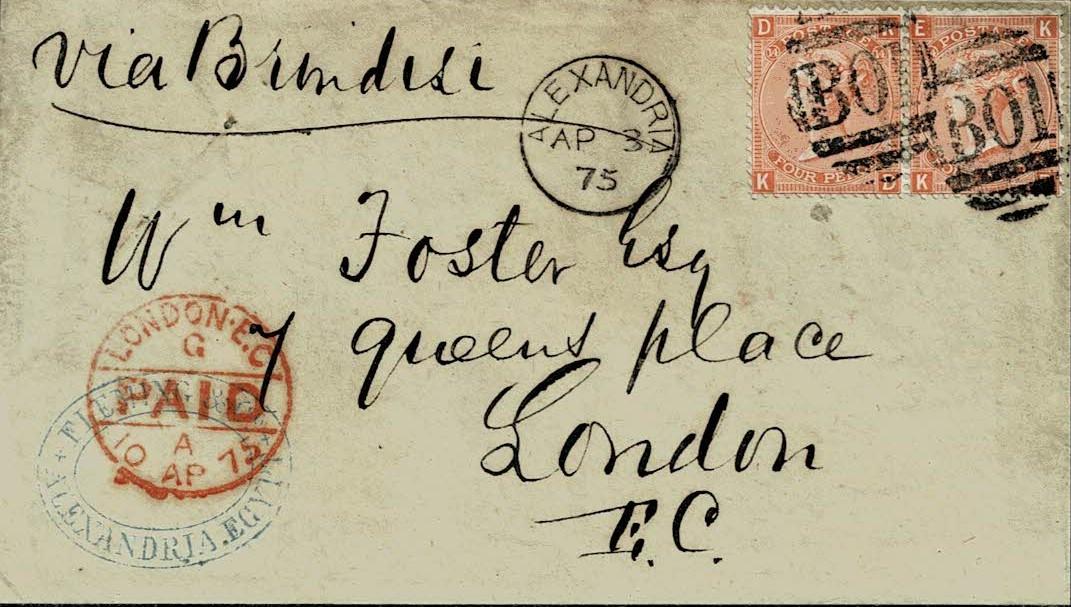 via Brindisi
ALEXANDRIA
AP 3
75
D K
E K
POSTAGE
POSTAGE
B01
B01
FOUR PENCE
K D
K
Wm Foster Esq
7 queens place
London
E.C.
LONDON·E.C
G
PAID
A
10 AP 75
FLEMING & Co
ALEXANDRIA.EGYPT